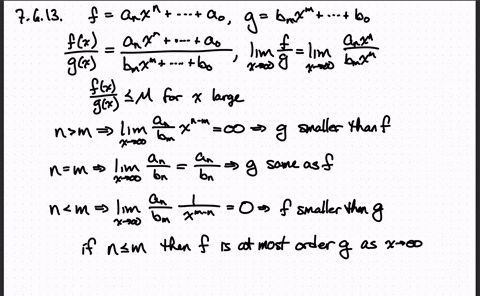 7.6.13. f = aₙxⁿ + ⋯ + a₀, g = bₘxᵐ + ⋯ + b₀
f(x)/g(x) = (aₙxⁿ + ⋯ + a₀)/(bₘxᵐ + ⋯ + b₀), lim_{x→∞} f/g = lim_{x→∞} aₙxⁿ/bₘxᵐ
f(x)/g(x) ≤ M for x large
n>m ⇒ lim_{x→∞} aₙ/bₘ x^{n-m} = ∞ ⇒ g smaller than f
n=m ⇒ lim_{x→∞} aₙ/bₙ = aₙ/bₙ ⇒ g same as f
n<m ⇒ lim_{x→∞} aₙ/bₘ 1/x^{m-n} = 0 ⇒ f smaller then g
if n≤m then f is at most order g as x→∞